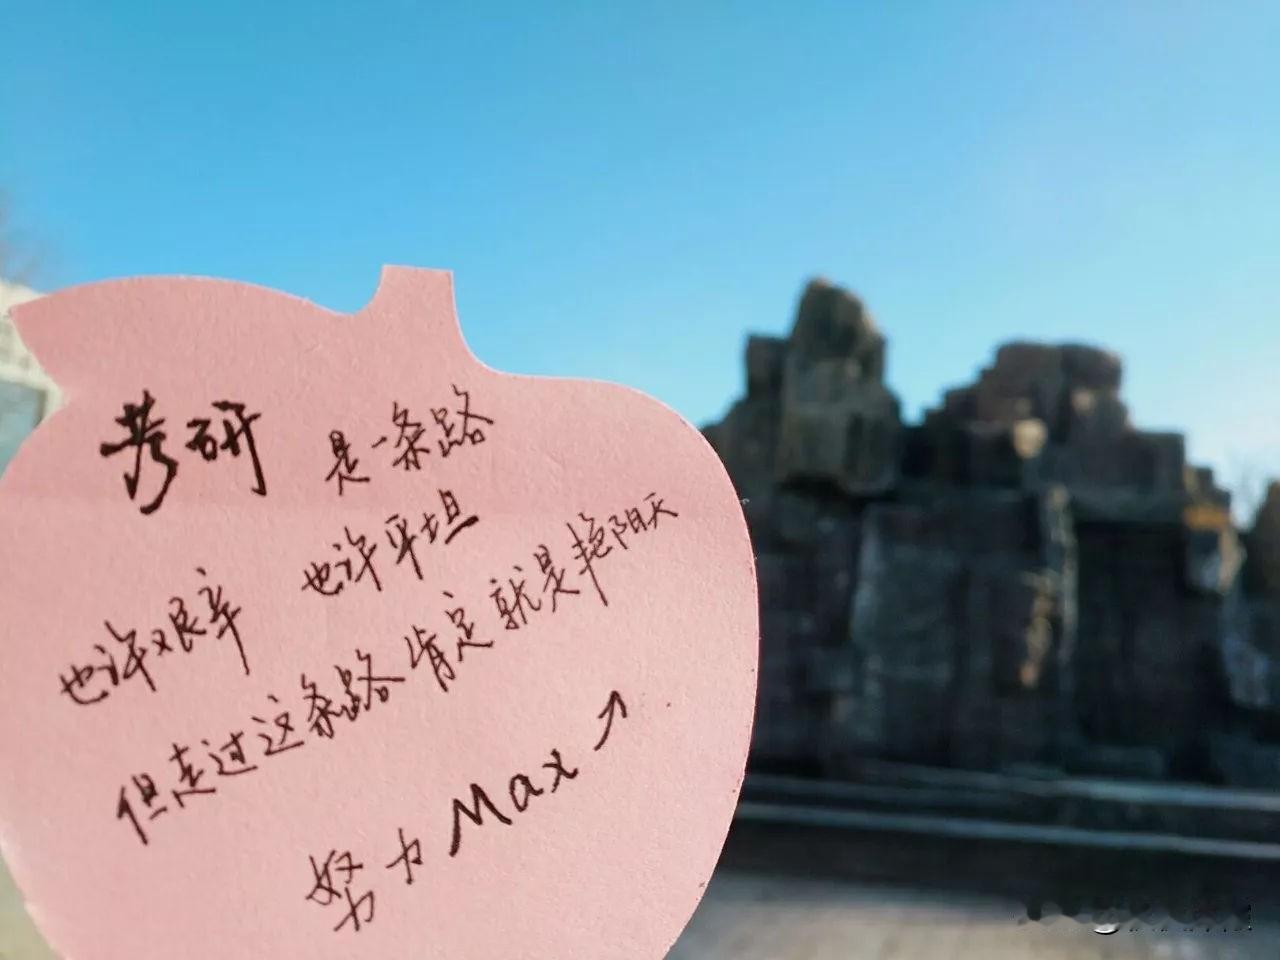 考研 是一条路
也许艰辛 也许平坦
但走过这条路肯定就是艳阳天
努力Max↗